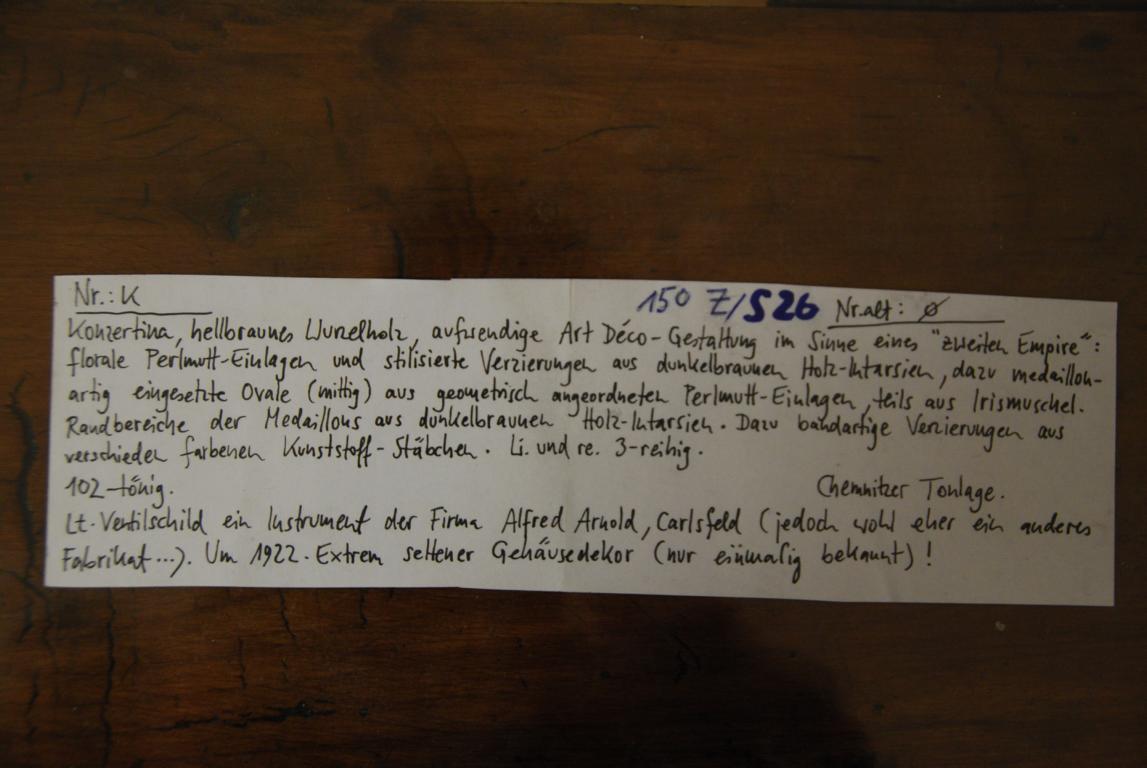 Nr.: K 150 Z/S26 Nr. alt: ø
Konzertina, hellbraunes Wurzelholz, aufwendige Art Déco-Gestaltung im Sinne eines "zweiten Empire":
florale Perlmutt-Einlagen und stilisierte Verzierungen aus dunkelbraunen Holz-Intarsien, dazu medaillon-
artig eingesetzte Ovale (mittig) aus geometrisch angeordneten Perlmutt-Einlagen, teils aus Irismuschel.
Randbereiche der Medaillons aus dunkelbraunen Holz-Intarsien. Dazu bandartige Verzierungen aus
verschieden farbenen Kunststoff-Stäbchen. Li. und re. 3-reihig.
102-tönig. Chemnitzer Tonlage.
Lt. Ventilschild ein Instrument der Firma Alfred Arnold, Carlsfeld (jedoch wohl eher ein anderes
Fabrikat...). Um 1922. Extrem seltener Gehäusedekor (nur einmalig bekannt)!